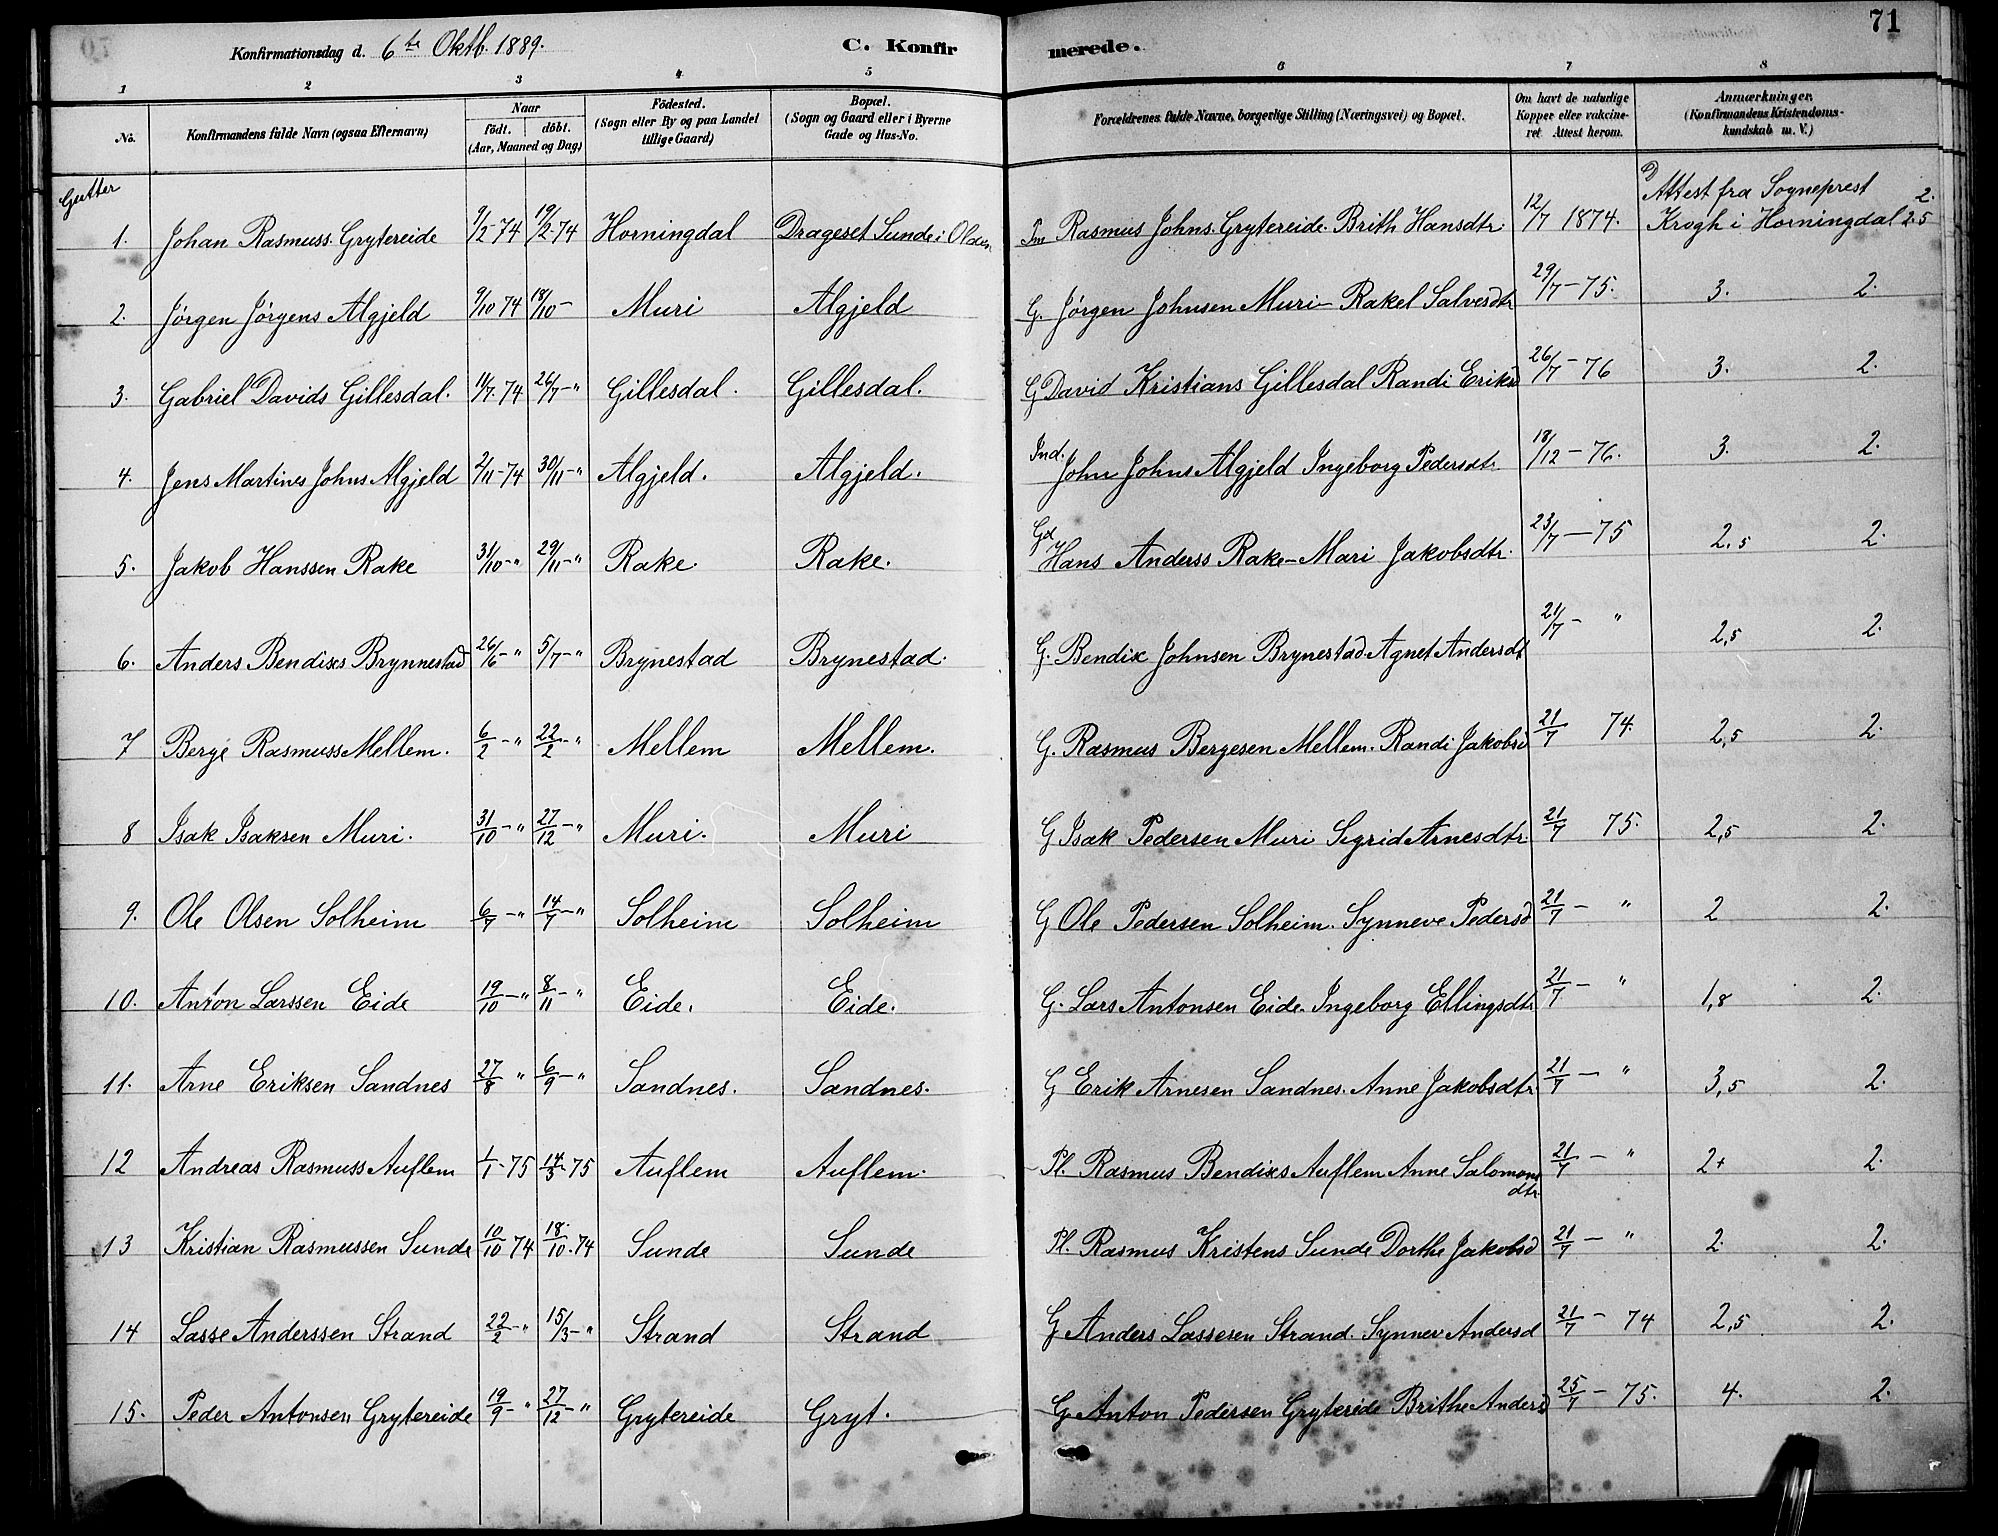 71
Konfirmationsdag d. 6te Oktb. 1889. C. Konfirmerede.
1 2 3 4 5 6 7 8
No. Konfirmandens fulde Navn (ogsaa Efternavn) Naar født. døbt. (Aar, Maaned og Dag) Fødested. (Sogn eller By og paa Landet tillige Gaard) Bopæl. (Sogn og Gaard eller i Byerne Gade og Hus-No. Forældrenes fulde Navne, borgerlige Stilling (Næringsvei) og Bopæl. Om havt de naturlige Kopper eller vakcineret. Attest herom. Anmærkninger. (Konfirmandens Kristendomskundskab m. V.)
Gutter
1. Johan Rasmuss. Grytereide 9/2-74 19/2-74 Horningdal Drageset Sunde i Olden Rasmus Johns. Grytereide. Brith Hansdtr. 12/7 1874. Attest fra Sogneprest Krogh i Horningdal 2. 2.5
2. Jørgen Jørgens Algjeld 9/10 74 18/10 - Muri Algjeld G. Jørgen Johnsen Muri - Rakel Salvesdtr 29/7 - 75. 3. 2.
3. Gabriel Davids Gillesdal. 11/7. 74 26/7 - " Gillesdal. Gillesdal. G David Kristians Gillesdal Randi Eriksd 26/7 - 76 3. 2.
4. Jens Martines Johns Algjeld 2/11-74 30/11 - " Algjeld. Algjeld. Ind. John Johns Algjeld Ingeborg Pedersdtr 18/12 - 76. 3. 2.
5. Jakob Hanssen Rake 31/10 - " 29/11 - " Rake. Rake. Hans Anderss Rake - Mari Jakobsdtr. 23/7 - 75 2,5 2.
6. Anders Bendixs Brynnestad 26/6 - " 5/7 - " Brynestad Brynestad. G. Bendix Johnsen Brynestad. Agnet Andersdt 21/7 - " 2,5 2.
7 Berge Rasmuss Mellem. 6/2 - " 22/2 - " Mellem Mellem. G. Rasmus Bergesen Mellem. Randi Jakobsd 21/7 74. 2,5 2.
8 Isak Isaksen Muri. 31/10 - " 27/12 - " Muri. Muri G Isak Pedersen Muri Sigrid Arnesdtr. 21/7 75. 2,5 2.
9. Ole Olsen Solheim 6/7 - " 14/7 - " Solheim Solheim G Ole Pedersen Solheim. Synneve Pedersd 21/7 - " 2 2.
10. Anton Larssen Eide 19/10 - " 8/11 - " Eide. Eide. G. Lars Antonsen Eide. Ingeborg Ellingsdtr 21/7 - " 1,8 2.
11. Arne Eriksen Sandnes 27/8 " 6/9 - " Sandnes. Sandnes. G Erik Arnesen Sandnes. Anne Jakobsdtr. 21/7 - " 3,5 2.
12 Andreas Rasmuss Auflem 1/1-75 14/3-75 Auflem Auflem. Pl. Rasmus Bendixs Auflem Anne Salomonsdtr. 21/7 - " 2+ 2.
13 Kristian Rasmussen Sunde 10/10 74 18/10. 74 Sunde Sunde Pl. Rasmus Kristens Sunde Dorthe Jakobsd 21/7 - " 2. 2.
14 Lasse Anderssen Strand 22/2 - " 15/3 - " Strand Strand G Anders Lassesen Strand. Synnev Andersd 21/7 - 74 2,5 2.
15. Peder Antonsen Grytereide 19/9 - " 27/12 - " Grytereide Gryt. G Anton Pedersen Grytereide Brithe Andersd 25/7 - 75. 4. 2.